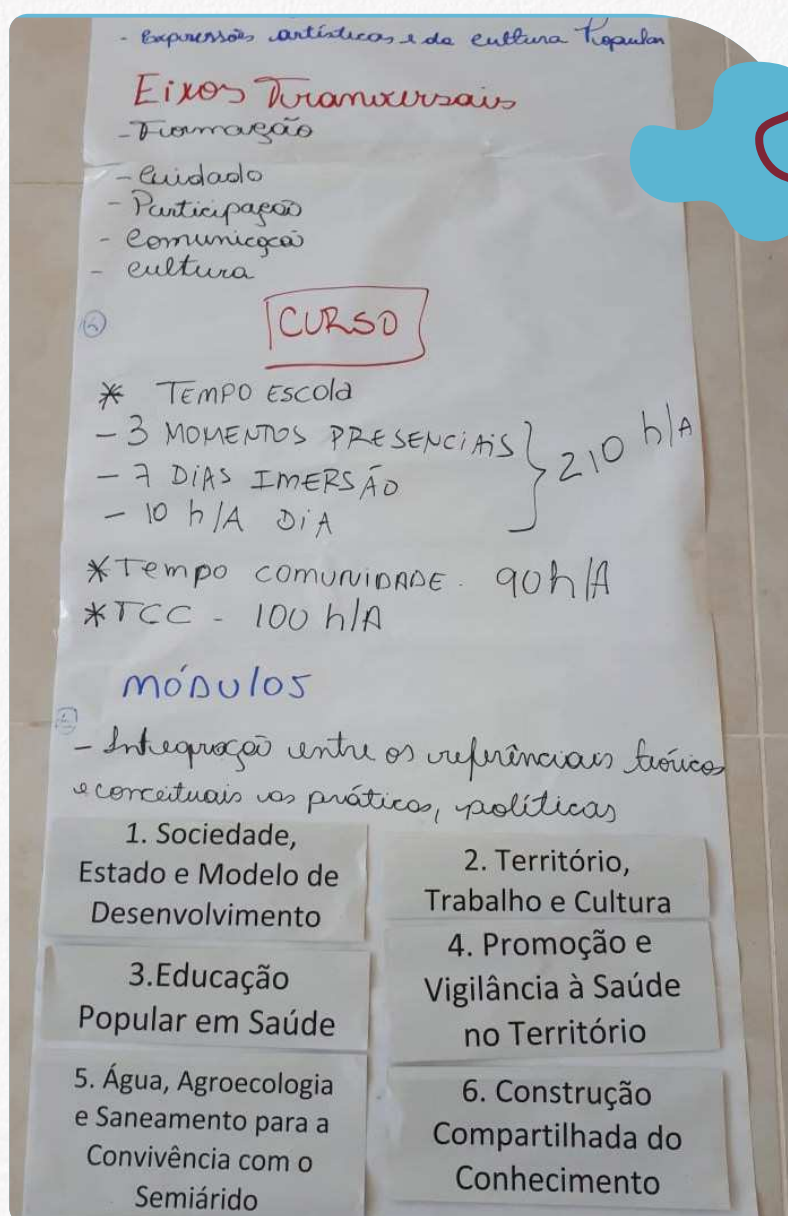 - Expressões artísticas e da cultura Popular
Eixos Transversais
- Formação
- Cuidado
- Participação
- Comunicação
- Cultura
CURSO
* TEMPO Escola
- 3 MOMENTOS PRESENCIAIS
- 7 DIAS IMERSÃO
- 10 h/A DIA
} 210 h/A
* Tempo COMUNIDADE. 90h/A
* TCC - 100 h/A
MÓDULOS
- Integração entre os referênciais teóricos
e conceituais as práticas, políticas
1. Sociedade,
Estado e Modelo de
Desenvolvimento
2. Território,
Trabalho e Cultura
3.Educação
Popular em Saúde
4. Promoção e
Vigilância à Saúde
no Território
5. Água, Agroecologia
e Saneamento para a
Convivência com o
Semiárido
6. Construção
Compartilhada do
Conhecimento